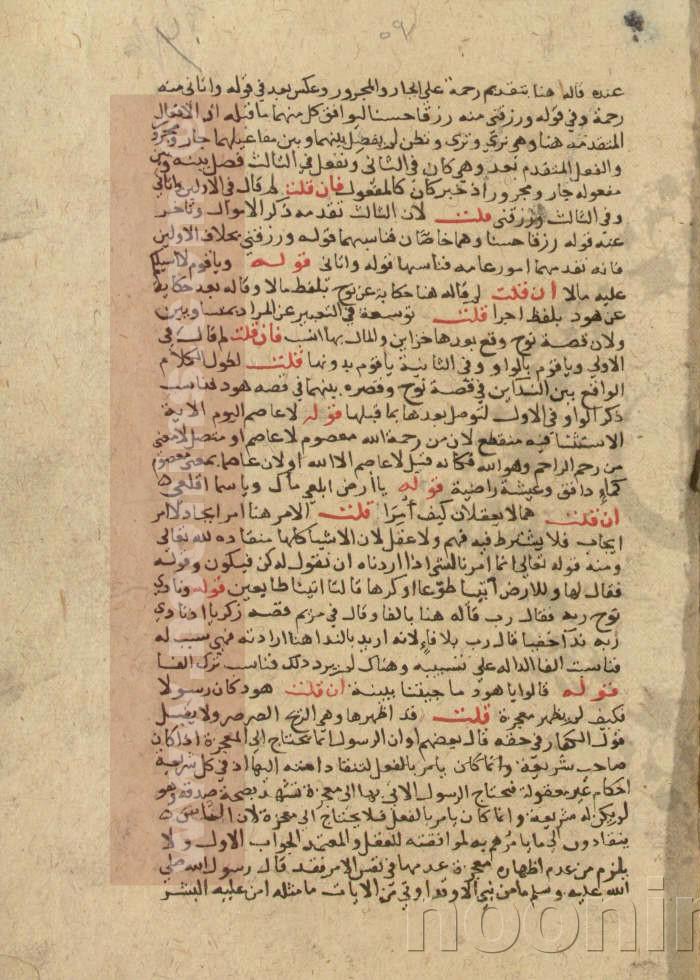 عنده قاله هنا بتقديم رحمة على الجار والمجرور وعكس بعد في قوله واتاني منه
رحمة وفي قوله ورزقني منه رزقا حسنا ليوافق كل منهما ما قبله اذ الافعال
المتقدمة هنا وهي نرى ونرى ونظن لم يفصل بينهما وبين مفاعيلهما جار ومجرور
والفعل المتقدم بعد وهي كان في الثاني ونفعل في الثالث فصل بينه وبين
مفعوله جار ومجرور اذ خبر كان كالمفعول فان قلت لم قال في الاولين واتاني
وفي الثالث ورزقني قلت لان الثالث تقدمه ذكر الاموال وتاخر
عنه قوله رزقا حسنا وهما خاصان فناسبهما قوله ورزقني بخلاف الاولين
فانه تقدمهما امور عامه فناسبها قوله واتاني قوله وياقوم لا اسالكم
عليه مالا ان قلت لم قاله هنا حكاية عن نوح بلفظ مالا وقاله بعد حكاية
عن هود بلفظ اجرا قلت توسعة في التعبير عن المراد بمتساويين
ولان قصة نوح وقع بعدها خزاين والمال بها انسب فان قلت لم قال في
الاولى وياقوم بالواو وفي الثانية ياقوم بدونها قلت لطول الكلام
الواقع بين الندائين في قصة نوح وقصره بينهما في قصه هود فناسب
ذكر الواو في الاول لتوصل بعدها بما قبلها قوله لا عاصم اليوم الاية
الاستثنا فيه منقطع لان من رحمة الله معصوم لا عاصم او متصل لا معنى
من رحم الراحم وهو الله فكانه قيل لا عاصم الا الله او لان عاصما بمعنى معصوم
كماء دافق وعيشة راضية قوله يا ارض ابلعي ماك وياسما اقلعي
ان قلت هما لا يعقلان كيف امرا قلت الامر هنا امر ايجاد لا امر
ايجاب فلا يشترط فيه فهم ولا عقل لان الاشيا كلها منقاده لله تعالى
ومنه قوله تعالى انما امرنا لشي اذا اردناه ان نقول له كن فيكون وقوله
فقال لها وللارض ائتيا طوعا او كرها قالتا اتينا طايعين قوله ونادى
نوح ربه فقال رب قاله هنا بالفا وقال في مريم قصه زكريا اذ نادى
ربه ندا خفيا قال رب بلا فاء لانه اريد بالندا هنا ارادته فهي سبب له
فناسب الفا الداله على تسببه وهناك لم يرد ذلك فناسب ترك الفا
قوله قالوا يا هود ما جيتنا ببينة ان قلت هود كان رسولا
فكيف لم يظهر معجزة قلت قد اظهرها وهي الريح الصرصر ولا يقبل
قول الكفار في حقه قال بعضهم او ان الرسول انما يحتاج الى المعجزة اذا كان
صاحب شريعة وانما كان يامر بالفعل لتنقاد امته اليها اذ في كل شريعة
احكام غير معقولة فيحتاج الرسول الاتي بها الى معجزة تشهد بصحة صدقه وهو
لم يكن له شريعة وانما كان يامر بالفعل فلا يحتاج الى معجزة لان الناس
ينقادون الى ما يامرهم به لموافقته للعقل والمعتمد الجواب الاول ولا
يلزم من عدم اظهاره معجزة عدمها في نفس الامر فقد قال رسول الله صلى
الله عليه وسلم ما من نبي الا وقد اوتي من الايات ما مثله امن عليه البشر
noonin